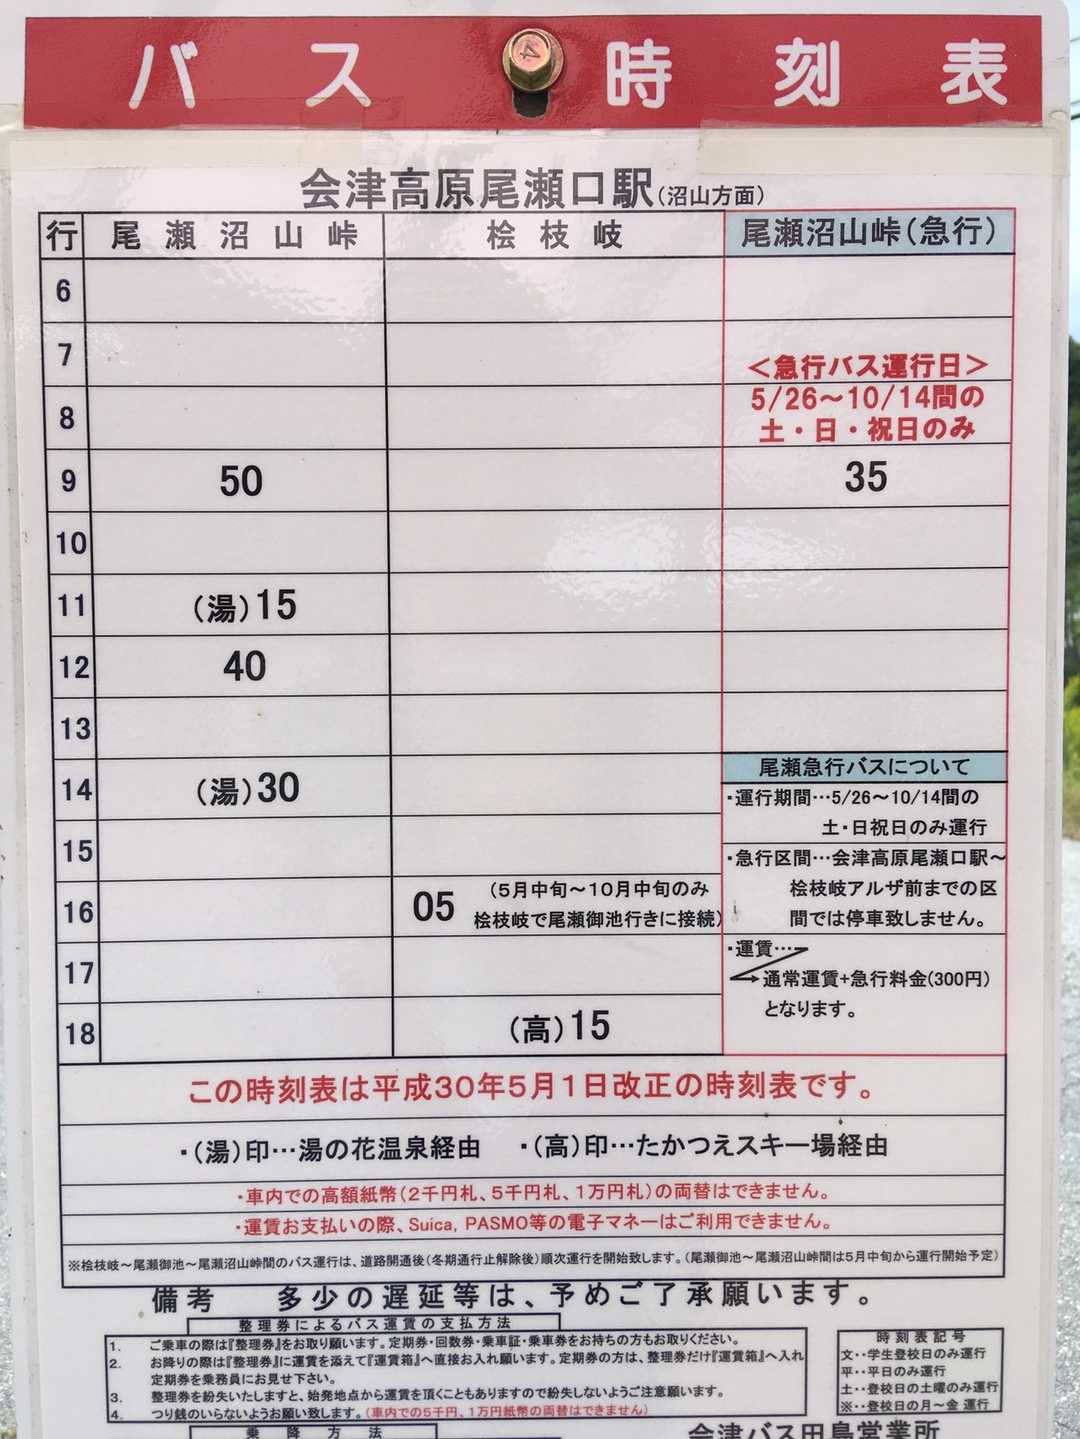 バス時刻表
会津高原尾瀬口駅(沼山方面)
行 尾瀬沼山峠 桧枝岐 尾瀬沼山峠(急行)
6
7 <急行バス運行日>
5/26～10/14間の
8 土・日・祝日のみ
9 50 35
10
11 (湯)15
12 40
13
14 (湯)30
15
16 05 (5月中旬～10月中旬のみ
桧枝岐で尾瀬御池行きに接続)
17
18 (高)15
尾瀬急行バスについて
・運行期間…5/26～10/14間の
土・日祝日のみ運行
・急行区間…会津高原尾瀬口駅～
桧枝岐アルザ前までの区
間では停車致しません。
・運賃…
通常運賃+急行料金(300円)
となります。
この時刻表は平成30年5月1日改正の時刻表です。
・(湯)印…湯の花温泉経由 ・(高)印…たかつえスキー場経由
・車内での高額紙幣(2千円札、5千円札、1万円札)の両替はできません。
・運賃お支払いの際、Suica, PASMO等の電子マネーはご利用できません。
※桧枝岐～尾瀬御池～尾瀬沼山峠間のバス運行は、道路開通後(冬期通行止解除後)順次運行を開始致します。(尾瀬御池～尾瀬沼山峠間は5月中旬から運行開始予定)
備考 多少の遅延等は、予めご了承願います。
整理券によるバス運賃の支払方法
1. ご乗車の際は『整理券』をお取り願います。定期券・回数券・乗車証・乗車券をお持ちの方もお取りください。
2. お降りの際は『整理券』に運賃を添えて『運賃箱』へ直接お入れ願います。定期券の方は、整理券だけ『運賃箱』へ入れ
定期券を乗務員にお見せ下さい。
3. 整理券を紛失いたしますと、始発地点から運賃を頂くこともありますので紛失しないようご注意願います。
4. つり銭のいらないようお願い致します。(車内での5千円、1万円紙幣の両替はできません)
時刻表記号
文・・学生登校日のみ運行
平・・平日のみ運行
土・・登校日の土曜のみ運行
※・・登校日の月～金 運行
乗降方法
会津バス田島営業所